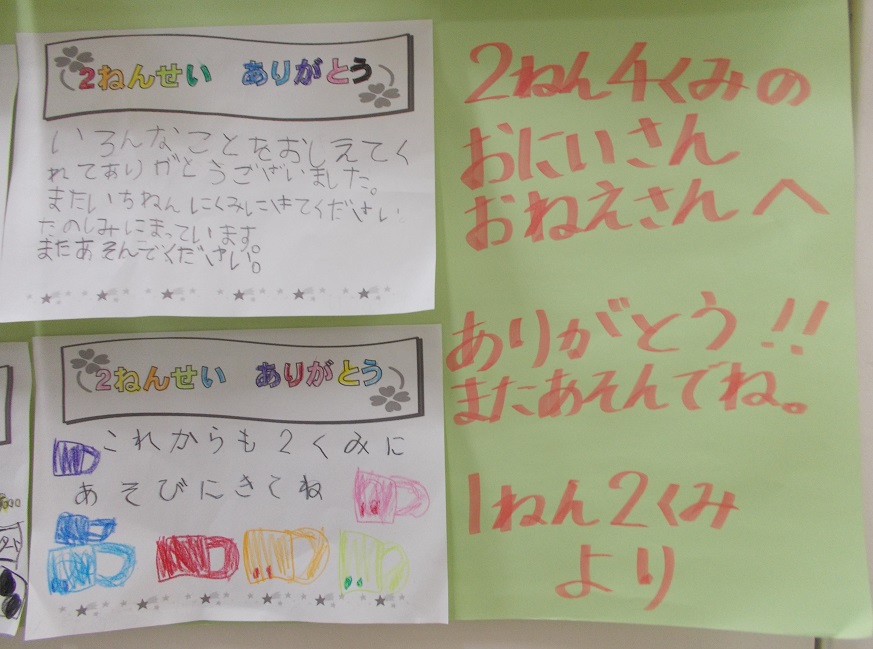 2ねんせい ありがとう
いろんなことをおしえてく
れてありがとうございました。
またいちねんにくみにきてください
たのしみにまっています。
またあそんでください。
2ねんせい ありがとう
これからも2くみに
あそびにきてね
2ねん4くみの
おにいさん
おねえさんへ
ありがとう!!
またあそんでね。
1ねん2くみ
より